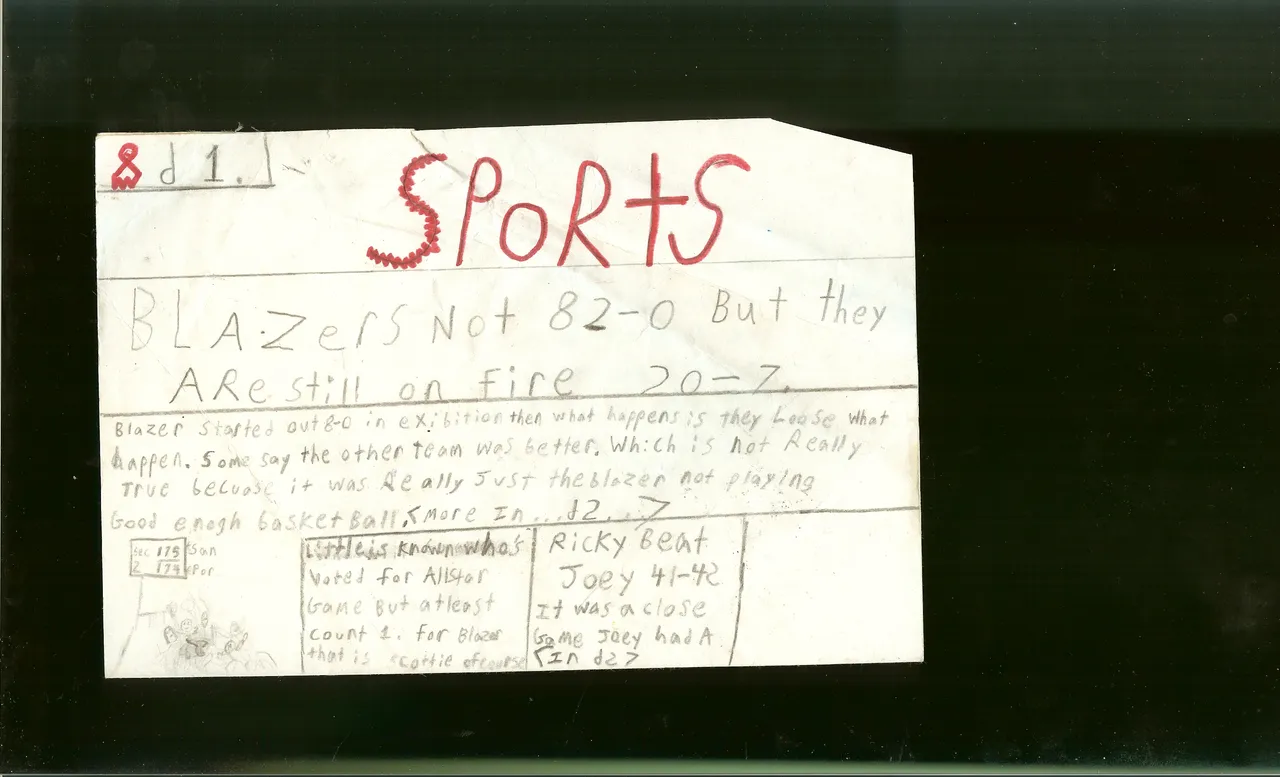 d 1.
SPORtS
BLAZerS Not 82-0 But they
ARe still on fire 20-7.
Blazer Started out 8-0 in exibition then what happens is they Loose what
happen. Some say the other team was better. Which is not Really
True becuase it was Really Just the blazer not playing
Good enogh basketBall. <More In...d2...>
Sec 175 San
2 174 Por
Little is known who's
Voted for Allstar
Game But atleast
count 1. for Blazer
that is scottie ofcourse
Ricky Beat
Joey 41-42
It was a close
Game Joey had A
<In d2>